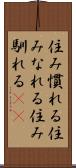 住み慣れる住
みなれる住み
馴れる